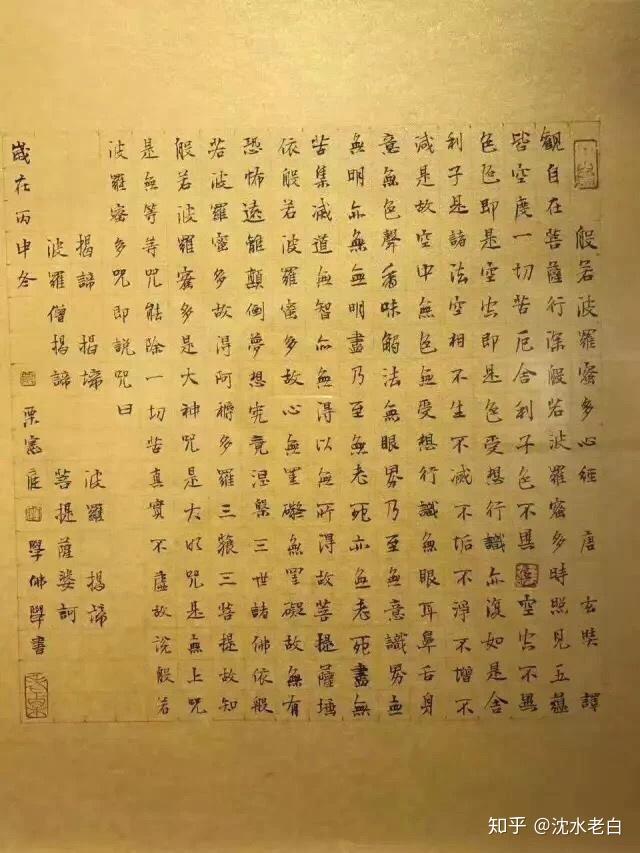 般若波羅蜜多心經 唐 玄奘 譯
觀自在菩薩行深般若波羅蜜多時照見五蘊
皆空度一切苦厄舍利子色不異空空不異
色色即是空空即是色受想行識亦復如是舍
利子是諸法空相不生不滅不垢不淨不增不
減是故空中無色無受想行識無眼耳鼻舌身
意無色聲香味觸法無眼界乃至無意識界無
無明亦無無明盡乃至無老死亦無老死盡無
苦集滅道無智亦無得以無所得故菩提薩埵
依般若波羅蜜多故心無罣礙無罣礙故無有
恐怖遠離顛倒夢想究竟涅槃三世諸佛依般
若波羅蜜多故得阿耨多羅三藐三菩提故知
般若波羅蜜多是大神咒是大明咒是無上咒
是無等等咒能除一切苦真實不虛故說般若
波羅蜜多咒即說咒曰
揭諦 揭諦 波羅 揭諦
波羅僧揭諦 菩提薩婆訶
歲在丙申冬 栗憲庭 學佛學書
知乎 @沈水老白